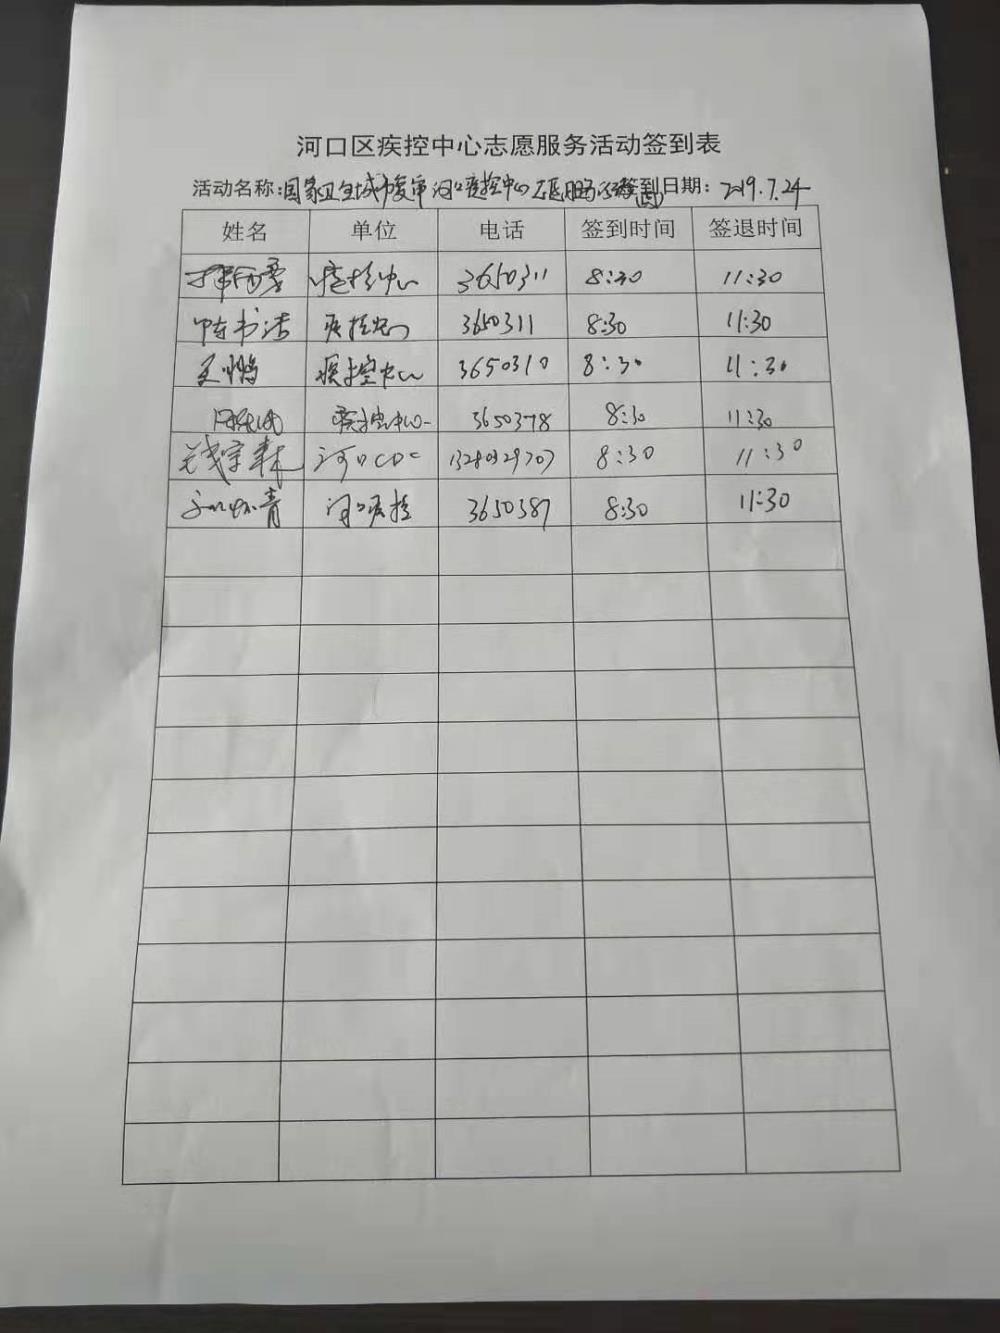 河口区疾控中心志愿服务活动签到表
活动名称:国家卫生城市复审河口疾控中心志愿服务活动签到日期: 2019.7.24
姓名 单位 电话 签到时间 签退时间
疾控中心 3650311 8:30 11:30
陈书洁 疾控中心 3650311 8:30 11:30
疾控中心 3650310 8:30 11:30
疾控中心 3650378 8:30 11:30
河口CDC 8:30 11:30
河口疾控 3650387 8:30 11:30